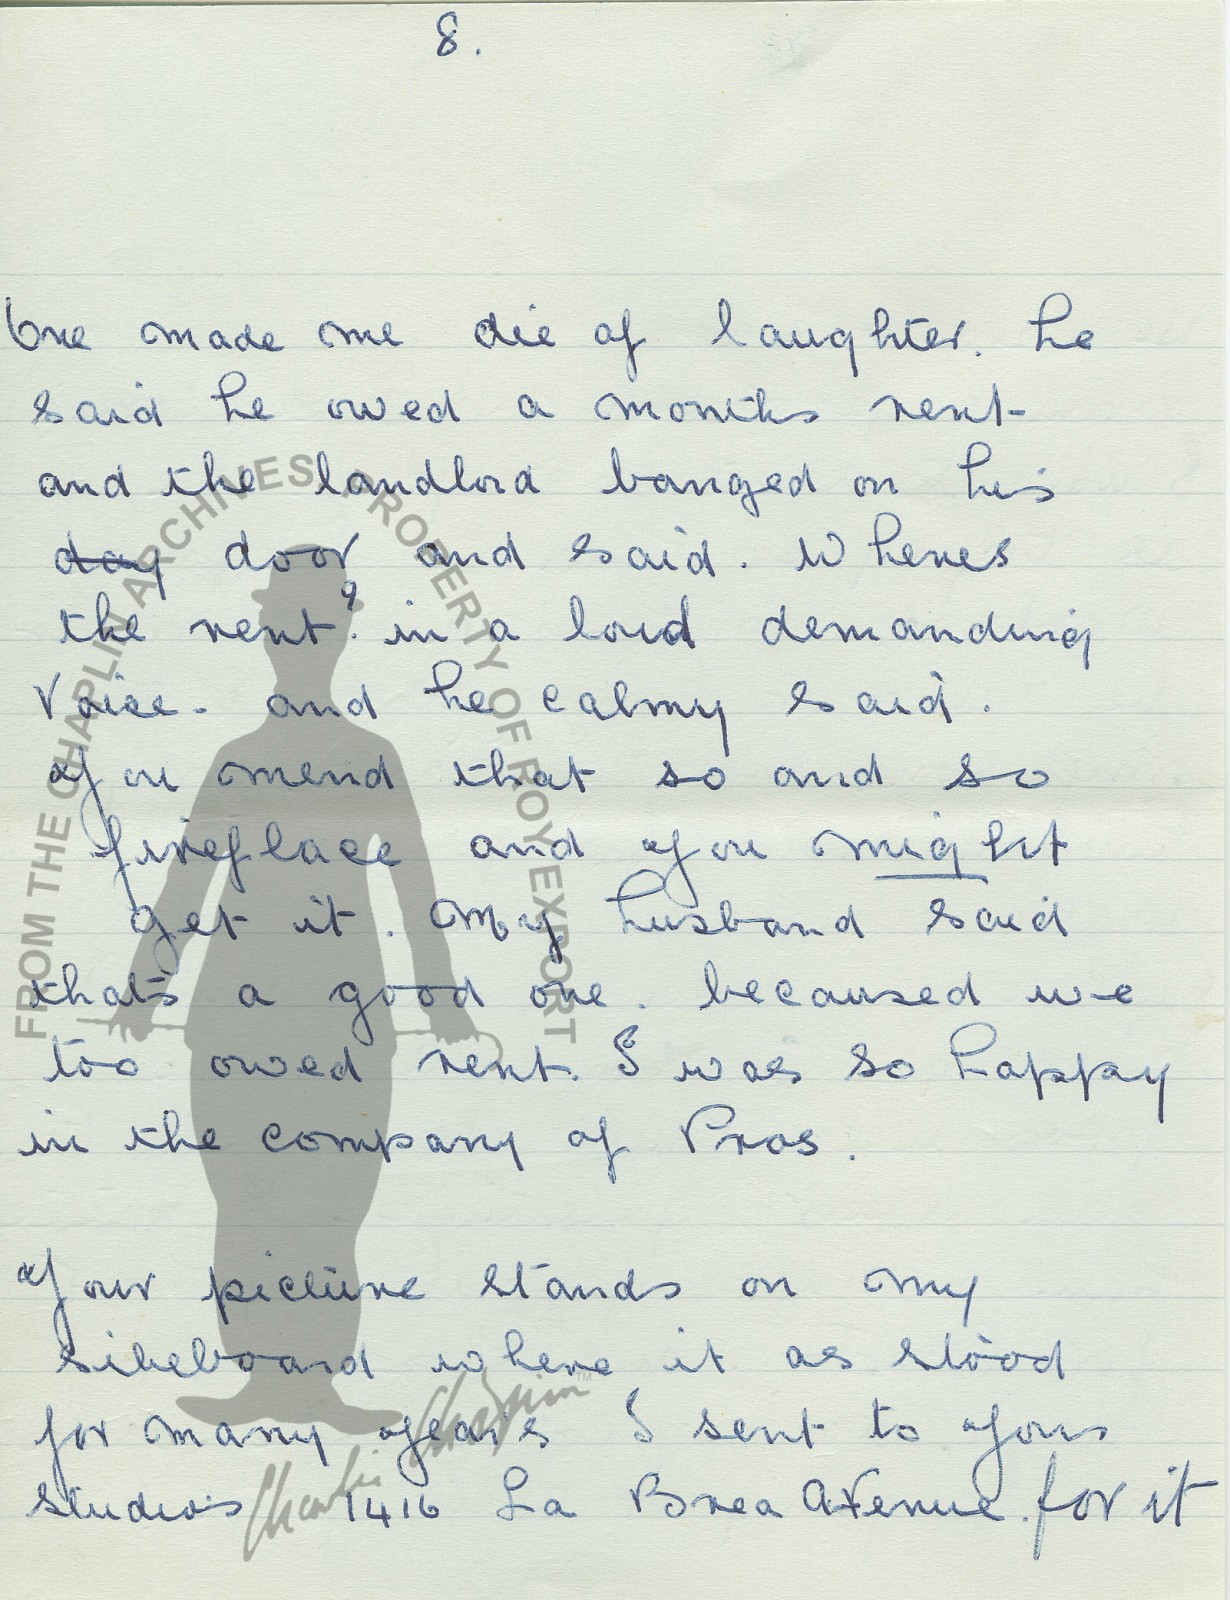 8.
One made me die of laughter. he
said he owed a months rent
and the landlord banged on his
day door and said. Wheres
the rent? in a loud demanding
voice. and he calmy said.
You mend that so and so
fireplace and you might
get it. My husband said
thats a good one. becaused we
too owed rent. I was so happy
in the company of Pros.
Your picture stands on my
sibeboard where it as stood
for many years I sent to your
studios 1416 La Brea Avenue. for it
FROM THE CHAPLIN ARCHIVES, PROPERTY OF ROY EXPORT
Charlie Chaplin™